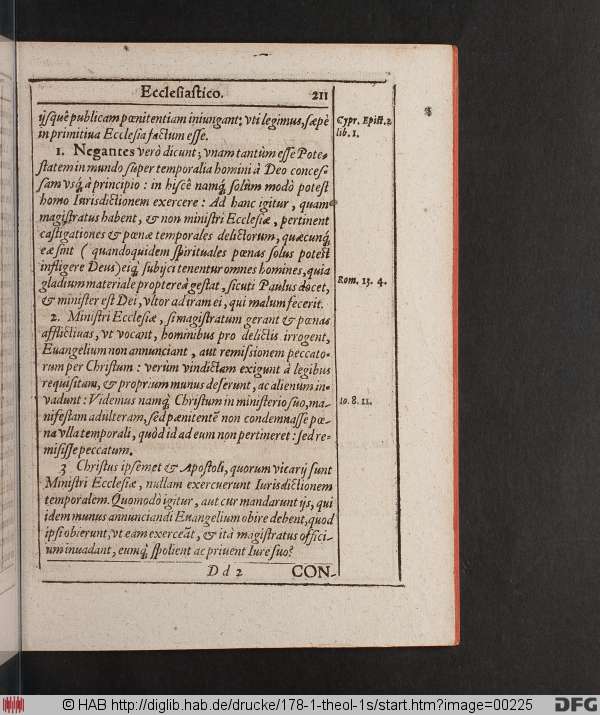 Ecclesiastico. 211
ijsquê publicam pœnitentiam iniungant: vti legimus, sæpè
in primitiua Ecclesia factum esse.
Cypr. Epist. 2
lib. 1.
1. Negantes verò dicunt; vnam tantùm esse Pote-
statem in mundo super temporalia homini à Deo conces-
sam vsq́; à principio: in hiscê namq́; solùm modò potest
homo Iurisdictionem exercere: Ad hanc igitur, quam
magistratus habent, & non ministri Ecclesiæ, pertinent
castigationes & pœnæ temporales delictorum, quæcunq́;
eæ sint ( quandoquidem spirituales pœnas solus potest
infligere Deus) eiq́; subijci tenentur omnes homines, quia
gladium materiale proptereà gestat, sicuti Paulus docet,
& minister est Dei, vltor ad iram ei, qui malum fecerit.
Rom. 13. 4.
2. Ministri Ecclesiæ, si magistratum gerant & pœnas
afflictiuas, vt vocant, hominibus pro delictis irrogent,
Euangelium non annunciant, aut remissionem peccato-
rum per Christum: verùm vindictam exigunt à legibus
requisitam, & proprium munus deserunt, ac alienum in-
vadunt: Videmus namq́; Christum in ministerio suo, ma-
nifestam adulteram, sed pænitentē non condemnasse pœ-
na vlla temporali, quòd id ad eum non pertineret: sed re-
misisse peccatum.
10. 8. 11.
3 Christus ipsemet & Apostoli, quorum vicarij sunt
Ministri Ecclesiæ, nullam exercuerunt Iurisdictionem
temporalem. Quomodò igitur, aut cur mandarunt ijs, qui
idem munus annunciandi Euangelium obire debent, quod
ipsi obierunt, vt eam exerceāt, & ità magistratus offici-
um inuadant, eumq́; spolient ac priuent Iure suo?
D d 2 CON-
© HAB http://diglib.hab.de/drucke/178-1-theol-1s/start.htm?image=00225
DFG